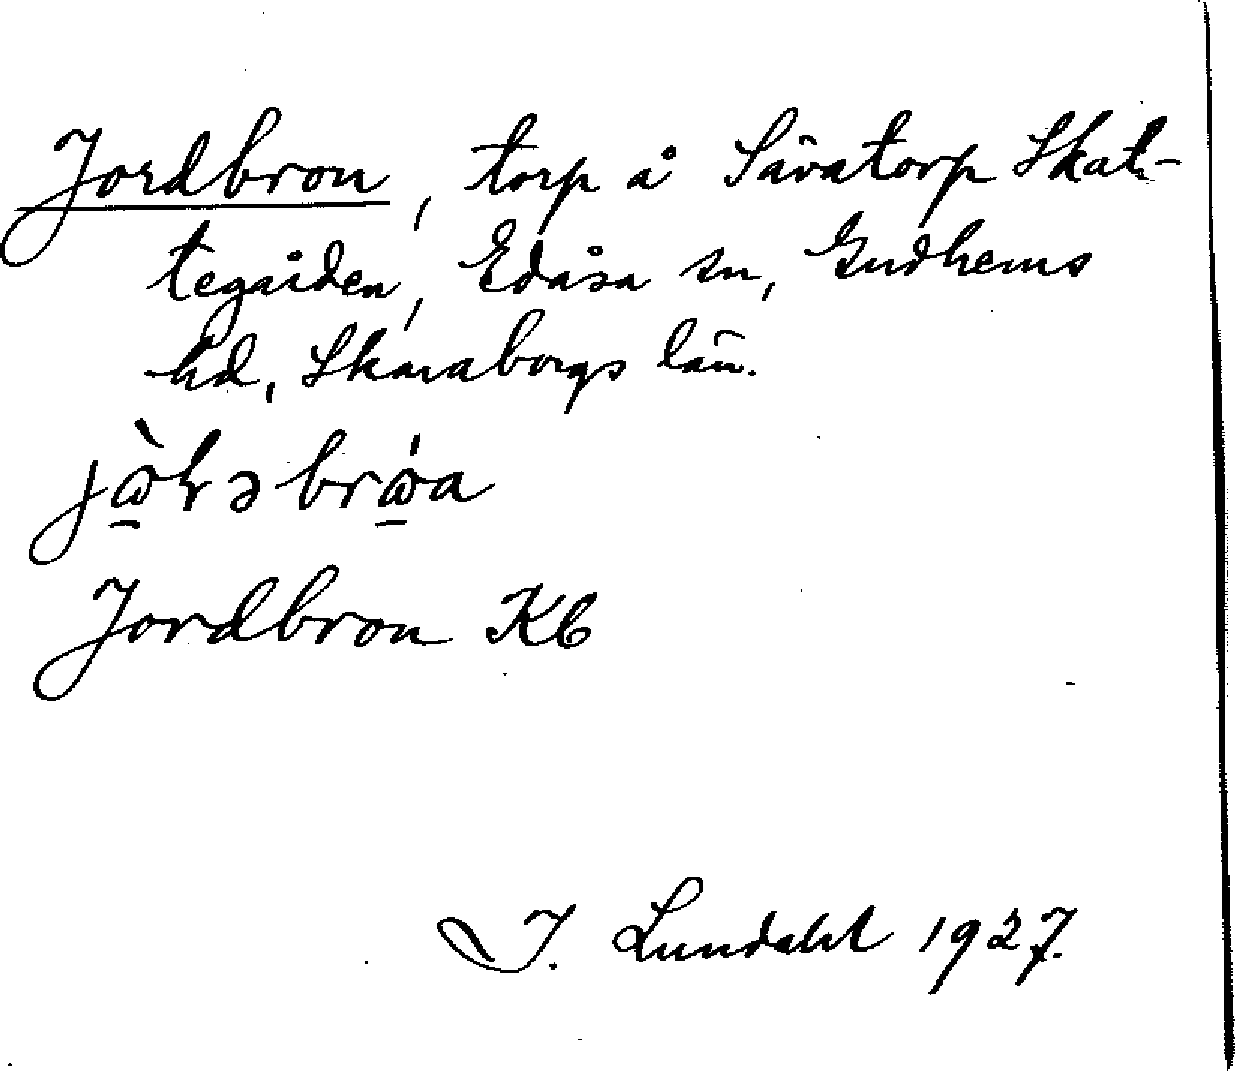 Jordbron, torp å Sävatorp Skat-
tegården, Edåsa sn, Gudhems
hd, Skaraborgs län.
Jordbron Kb
I. Lundahl 1927.